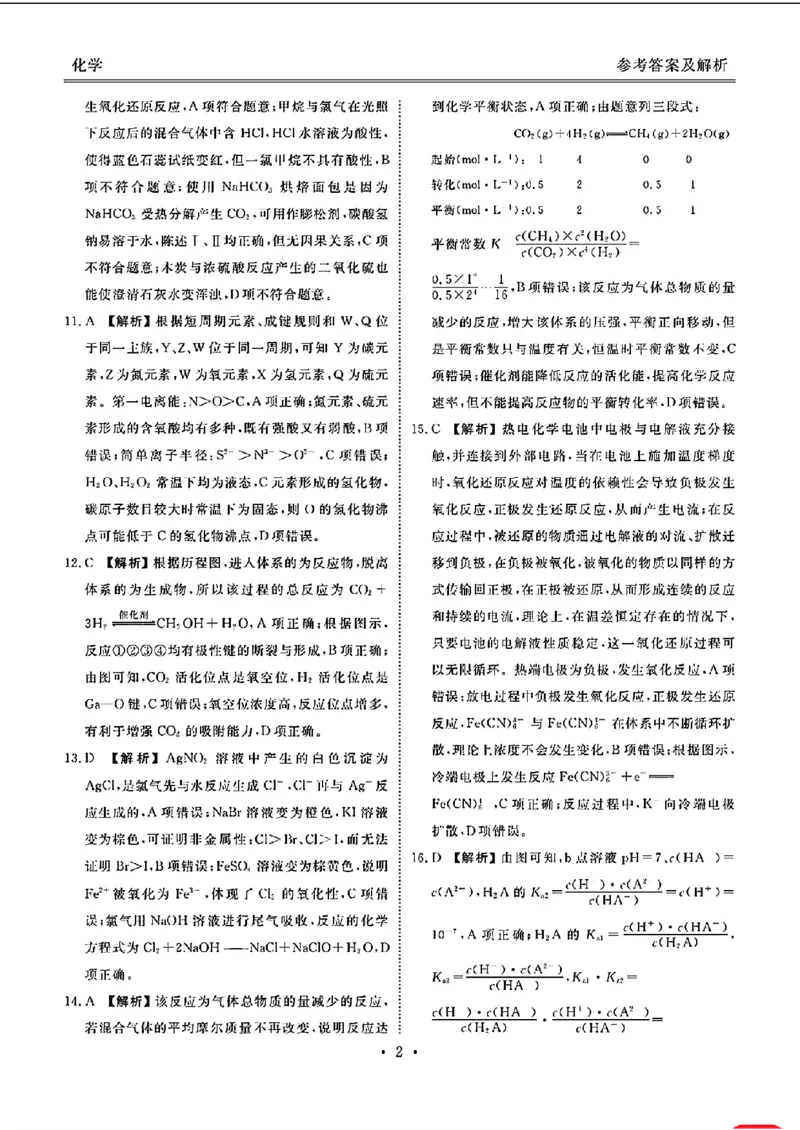 化学
参考答案及解析
生氧化还原反应,A项符合题意;甲烷与氯气在光照
下反应后的混合气体中含 HCl,HCl水溶液为酸性,
使得蓝色石蕊试纸变红,但一氯甲烷不具有酸性,B
项不符合题意;使用 NaHCO₃ 烘焙面包是因为
NaHCO₃ 受热分解产生CO₂,可用作膨松剂,碳酸氢
钠易溶于水,陈述Ⅰ、Ⅱ均正确,但无因果关系,C项
不符合题意;木炭与浓硫酸反应产生的二氧化硫也
能使澄清石灰水变浑浊,D项不符合题意。
11. A 【解析】根据短周期元素、成键规则和 W、Q 位
于同一主族,Y、Z、W位于同一周期,可知 Y 为碳元
素,Z为氮元素,W为氧元素,X为氢元素,Q为硫元
素。第一电离能:N>O>C,A项正确;氮元素、硫元
素形成的含氧酸均有多种,既有强酸又有弱酸,B项
错误;简单离子半径:S²⁻>N³⁻>O²⁻,C项错误;
H₂O、H₂O₂ 常温下均为液态,C元素形成的氢化物,
碳原子数目较大时常温下为固态,则O的氢化物沸
点可能低于C的氢化物沸点,D项错误。
12. C 【解析】根据历程图,进入体系的为反应物,脱离
体系的为生成物,所以该过程的总反应为 CO₂+
催化剂
3H₂⇌CH₃OH+H₂O,A项正确;根据图示,
反应①②③④均有极性键的断裂与形成,B项正确;
由图可知,CO₂ 活化位点是氧空位,H₂ 活化位点是
Ga—O键,C项错误;氧空位浓度高,反应位点增多,
有利于增强CO₂ 的吸附能力,D项正确。
13. D 【解析】AgNO₃ 溶液中产生的白色沉淀为
AgCl,是氯气先与水反应生成Cl⁻,Cl⁻再与Ag⁺反
应生成的,A项错误;NaBr溶液变为橙色,KI溶液
变为棕色,可证明非金属性:Cl>Br、Cl>I,而无法
证明Br>I,B项错误;FeSO₄ 溶液变为棕黄色,说明
Fe²⁺被氧化为Fe³⁺,体现了Cl₂ 的氧化性,C项错
误;氯气用NaOH溶液进行尾气吸收,反应的化学
方程式为Cl₂+2NaOH══NaCl+NaClO+H₂O,D
项正确。
14. A 【解析】该反应为气体总物质的量减少的反应,
若混合气体的平均摩尔质量不再改变,说明反应达
到化学平衡状态,A项正确;由题意列三段式:
CO₂(g)+4H₂(g)⇌CH₄(g)+2H₂O(g)
起始(mol·L⁻¹): 1 4 0 0
转化(mol·L⁻¹):0.5 2 0.5 1
平衡(mol·L⁻¹):0.5 2 0.5 1
平衡常数 K=c(CH₄)×c²(H₂O)/c(CO₂)×c⁴(H₂)=
0.5×1²/0.5×2⁴=1/16,B项错误;该反应为气体总物质的量
减少的反应,增大该体系的压强,平衡正向移动,但
是平衡常数只与温度有关,恒温时平衡常数不变,C
项错误;催化剂能降低反应的活化能,提高化学反应
速率,但不能提高反应物的平衡转化率,D项错误。
15. C 【解析】热电化学电池中电极与电解液充分接
触,并连接到外部电路,当在电池上施加温度梯度
时,氧化还原反应对温度的依赖性会导致负极发生
氧化反应,正极发生还原反应,从而产生电流;在反
应过程中,被还原的物质通过电解液的对流、扩散迁
移到负极,在负极被氧化,被氧化的物质以同样的方
式传输回正极,在正极被还原,从而形成连续的反应
和持续的电流,理论上,在温差恒定存在的情况下,
只要电池的电解液性质稳定,这一氧化还原过程可
以无限循环。热端电极为负极,发生氧化反应,A项
错误;放电过程中负极发生氧化反应,正极发生还原
反应,Fe(CN)₆³⁻ 与 Fe(CN)₆⁴⁻ 在体系中不断循环扩
散,理论上浓度不会发生变化,B项错误;根据图示,
冷端电极上发生反应 Fe(CN)₆³⁻+e⁻══
Fe(CN)₆⁴⁻,C项正确;反应过程中,K⁺向冷端电极
扩散,D项错误。
16. D 【解析】由图可知,b点溶液 pH=7、c(HA⁻)=
c(A²⁻),H₂A的 Kₐ₂=c(H⁺)·c(A²⁻)/c(HA⁻)=c(H⁺)=
10⁻⁷,A项正确;H₂A的 Kₐ₁=c(H⁺)·c(HA⁻)/c(H₂A),
Kₐ₂=c(H⁺)·c(A²⁻)/c(HA⁻),Kₐ₁·Kₐ₂=
c(H⁺)·c(HA⁻)/c(H₂A)·c(H⁺)·c(A²⁻)/c(HA⁻)=
· 2 ·